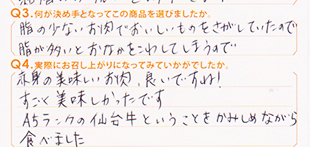 Q3.何が決め手となってこの商品を選びましたか。
脂の少ないお肉でおいしいものをさがしていたので
脂が多いとおなかをこわしてしまうので
Q4.実際にお召し上がりになってみていかがでしたか。
赤身の美味しいお肉、良いですね!
すごく美味しかったです
A5ランクの仙台牛ということをかみしめながら
食べました